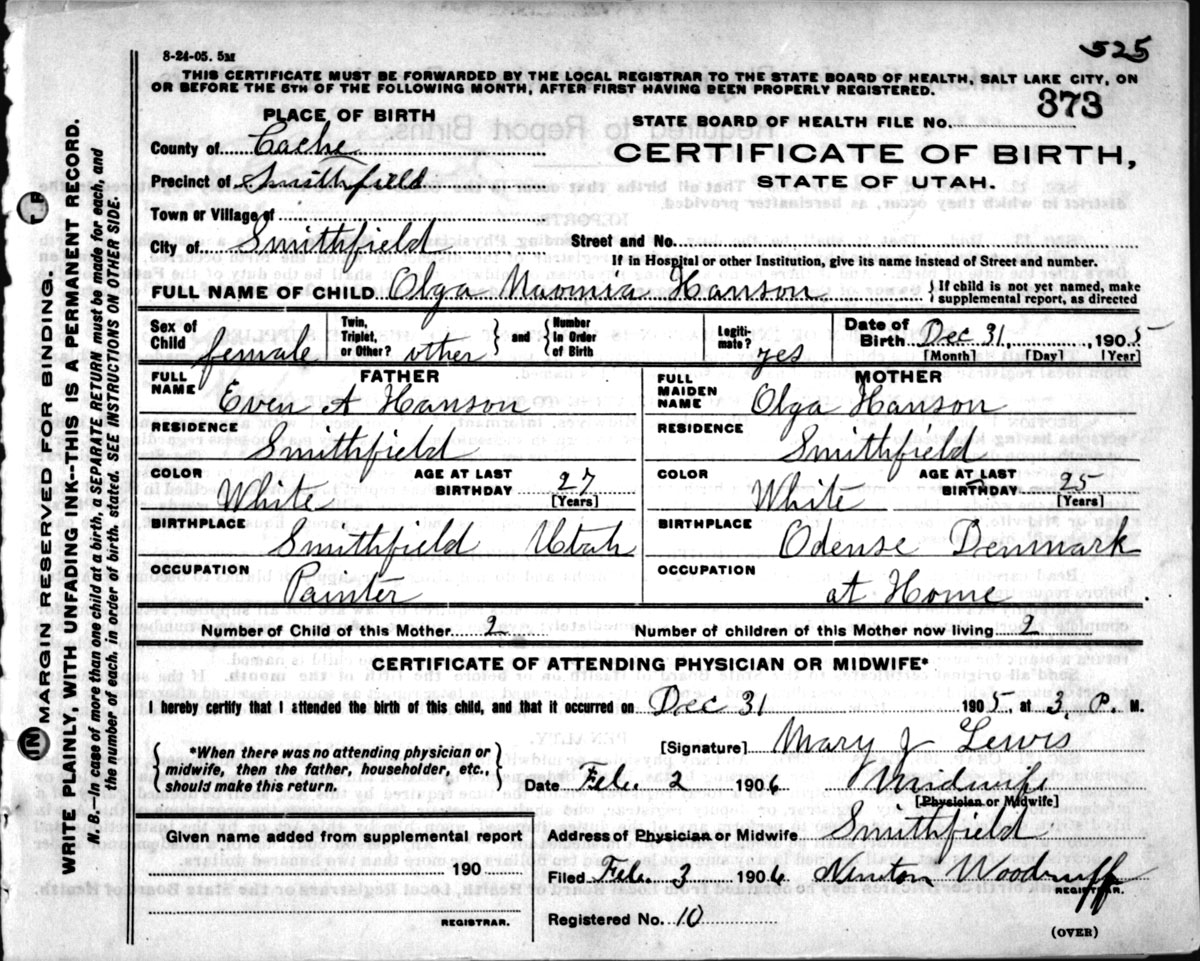 525
8-24-05. 5M
THIS CERTIFICATE MUST BE FORWARDED BY THE LOCAL REGISTRAR TO THE STATE BOARD OF HEALTH, SALT LAKE CITY, ON
OR BEFORE THE 5TH OF THE FOLLOWING MONTH, AFTER FIRST HAVING BEEN PROPERLY REGISTERED.
PLACE OF BIRTH
STATE BOARD OF HEALTH FILE No. 373
County of Cache
CERTIFICATE OF BIRTH,
Precinct of Smithfield
STATE OF UTAH.
Town or Village of
City of Smithfield Street and No.
If in Hospital or other Institution, give its name instead of Street and number.
FULL NAME OF CHILD Olga Hanson { If child is not yet named, make supplemental report, as directed
Sex of Child female Twin, Triplet, or Other? other } and { Number in Order of Birth Legiti-mate? yes Date of Birth Dec 31, 1905
[Month] [Day] [Year]
FATHER MOTHER
FULL NAME Even A Hanson FULL MAIDEN NAME Olga Hanson
RESIDENCE Smithfield RESIDENCE Smithfield
COLOR White AGE AT LAST BIRTHDAY 27 [Years] COLOR White AGE AT LAST BIRTHDAY 25 [Years]
BIRTHPLACE Smithfield Utah BIRTHPLACE Odense Denmark
OCCUPATION Painter OCCUPATION at Home
Number of Child of this Mother 2 Number of children of this Mother now living 2
CERTIFICATE OF ATTENDING PHYSICIAN OR MIDWIFE*
I hereby certify that I attended the birth of this child, and that it occurred on Dec 31 1905, at 3, P. M.
{ *When there was no attending physician or midwife, then the father, householder, etc., should make this return. }
[Signature] Mary J Lewis
Date Feb. 2 1906 Midwife
[Physician or Midwife]
Given name added from supplemental report
190
REGISTRAR.
Address of Physician or Midwife Smithfield
Filed Feb. 3 1906 Woodruff
REGISTRAR.
Registered No. 10
(OVER)
MARGIN RESERVED FOR BINDING.
WRITE PLAINLY, WITH UNFADING INK--THIS IS A PERMANENT RECORD.
N. B.--In case of more than one child at a birth, a SEPARATE RETURN must be made for each, and
the number of each, in order of birth, stated. SEE INSTRUCTIONS ON OTHER SIDE.